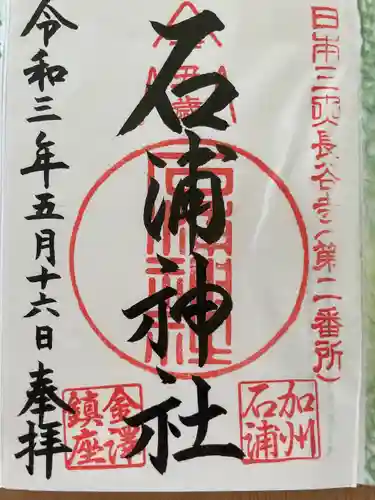 日本三大長谷寺(第二番所)
石浦神社
加州
石浦
金澤
鎮座
令和三年五月十六日 奉拝